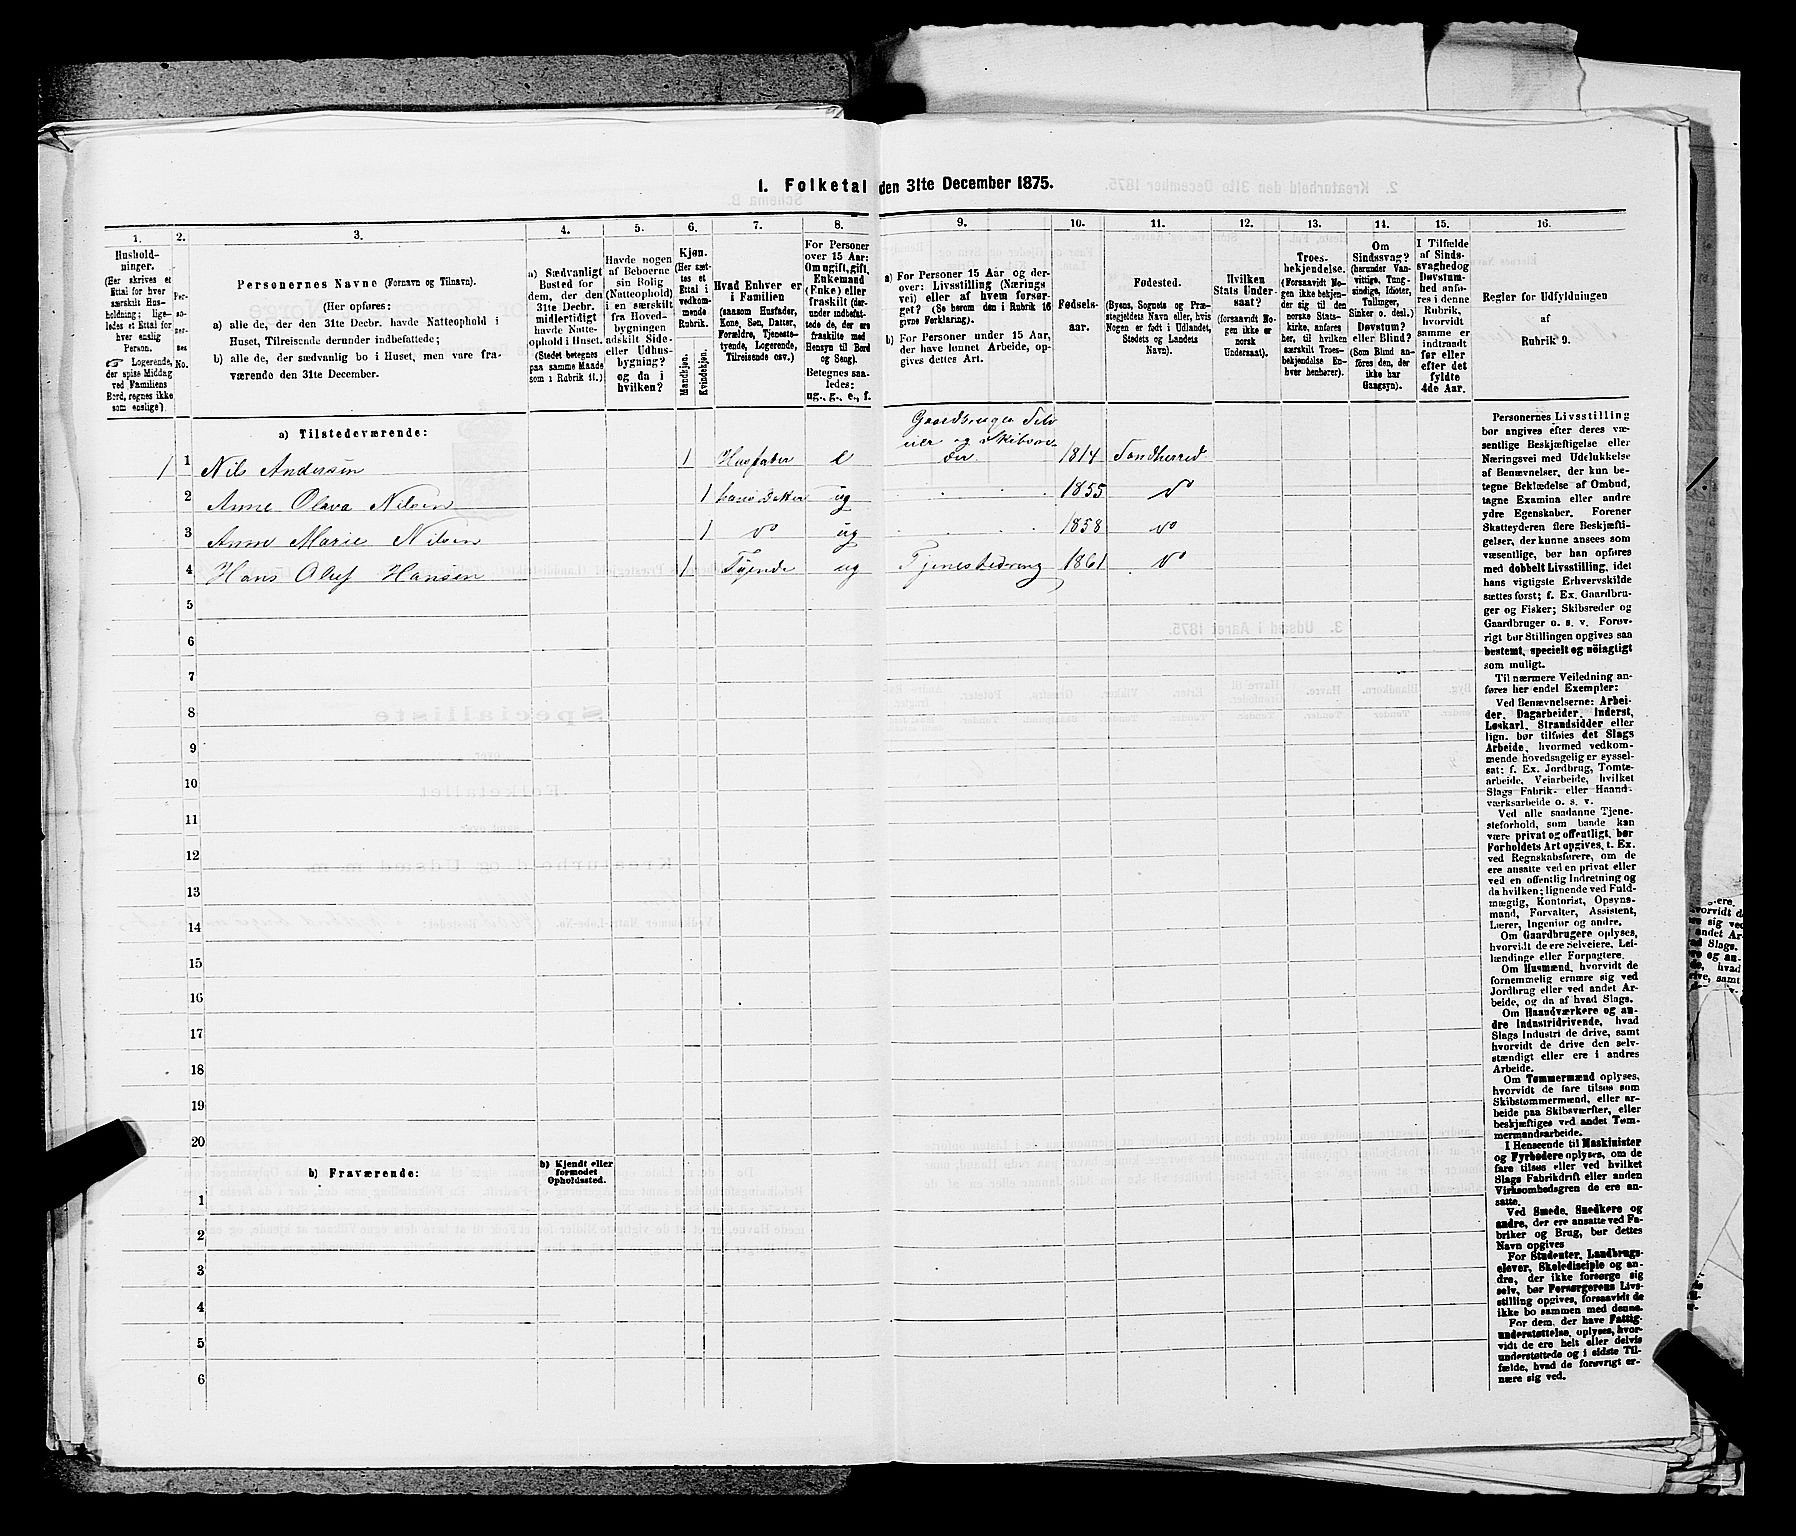 1. Folketal den 31te December 1875.
1.
Hushold-
ninger.
(Her skrives et
Ettal for hver
særskilt Hus-
holdning; lige-
ledes et Ettal for
hver enslig
Person.
Logerende,
der spise Middag
ved Familiens
Bord, regnes ikke
som enslige).
2.
Per-
so-
ner-
nes
No.
3.
Personernes Navne (Fornavn og Tilnavn).
(Her opføres:
a) alle de, der den 31te Decbr. havde Natteophold i
Huset, Tilreisende derunder indbefattede;
b) alle de, der sædvanlig bo i Huset, men vare fra-
værende den 31te December.
4.
a) Sædvanligt
Bosted for
dem, der den
31te Decbr.
midlertidigt
havde Natte-
ophold i Huset.
(Stedet betegnes
paa samme Maade
som i Rubrik 11.)
5.
Havde nogen
af Beboerne
sin Bolig
(Natteophold)
i en særskilt
fra Hoved-
bygningen
adskilt Side-
eller Udhus-
bygning?
og da i
hvilken?
6.
Kjøn.
(Her sæt-
tes et
Ettal i
vedkom-
mende
Rubrik.
Mandkjøn.
Kvindekjøn.
7.
Hvad Enhver er
i Familien
(saasom Husfader,
Kone, Søn, Datter,
Forældre, Tjeneste-
tyende, Logerende,
Tilreisende osv.)
8.
For Personer
over 15 Aar:
Om ugift, gift,
Enkemand
(Enke) eller
fraskilt (der-
under indbefat-
tede de, der ere
fraskilte med
Hensyn til Bord
og Seng).
Betegnes saa-
ledes:
ug., g., e., f.
9.
a) For Personer 15 Aar og der-
over: Livsstilling (Nærings-
vei) eller af hvem forsør-
get? (Se herom den i Rubrik 16
givne Forklaring).
b) For Personer under 15 Aar,
der have lønnet Arbeide, op-
gives dettes Art.
10.
Fødsels-
aar.
11.
Fødested.
(Byens, Sognets og Præ-
stegjeldets Navn, eller, hvis
Nogen er født i Udlandet,
Stedets og Landets
Navn).
12.
Hvilken
Stats Under-
saat?
(Forsaavidt No-
gen ikke er
norsk
Undersaat).
13.
Troes-
bekjendelse.
(Forsaavidt No-
gen ikke bekjen-
der sig til den
norske Stats-
kirke, anføres
her, til hvilken
særskilt Troes-
bekjendelse En-
hver henhører).
14.
Om
Sindssvag?
(herunder Van-
vittige, Tung-
sindige, Idioter,
Tullinger,
Sinker o. desl.)
Døvstum?
eller Blind?
(Som Blind an-
føres den, der
ikke har
Gangsyn).
15.
I Tilfælde
af Sinds-
svaghed og
Døvstum-
hed anfø-
res i denne
Rubrik,
hvorvidt
samme er
indtraadt
før eller
efter det
fyldte
4de Aar.
16.
Regler for Udfyldningen
af
Rubrik 9.
a) Tilstedeværende:
1 1 Nils Andersen 1 Husfader e Gaardbruger Selv
eier og Skibsre
der. 1814 Sandherred
2 Anne Olava Nilsen 1 hans Datter ug 1855 do
3 Anne Marie Nilsen 1 do ug 1858 do
4 Hans Oluf Hansen 1 Tyende ug Tjenestedreng 1861 do
5
6
7
8
9
10
11
12
13
14
15
16
17
18
19
20
b) Fraværende:
b) Kjendt eller
formodet
Opholdssted.
1
2
3
4
5
6
Personernes Livsstilling
bør angives efter deres væ-
sentlige Beskjæftigelse eller
Næringsvei med Udelukkelse
af Benævnelser, der kun be-
tegne Beklædelse af Ombud,
tagne Examina eller andre
ydre Egenskaber. Forener
Skatteyderen flere Beskjæfti-
gelser, der kunne ansees som
væsentlige, bør han opføres
med dobbelt Livsstilling, idet
hans vigtigste Erhvervskilde
sættes først; f. Ex. Gaardbru-
ger og Fisker; Skibsreder og
Gaardbruger o. s. v. Forøv-
rigt bør Stillingen opgives saa
bestemt, specielt og nöiagtigt
som muligt.
Til nærmere Veiledning an-
føres her endel Exempler:
Ved Benævnelserne: Arbei-
der, Dagarbeider, Inderst,
Løskarl, Strandsidder eller
lign. bør tilføies det Slags
Arbeide, hvormed vedkom-
mende hovedsagelig er syssel-
sat; f. Ex. Jordbrug, Tomte-
arbeide, Veiarbeide, hvilket
Slags Fabrik- eller Haand-
værksarbeide o. s. v.
Ved alle saadanne Tjene-
steforhold, som baade kan
være privat og offentligt, bør
Forholdets Art opgives, t. Ex.
ved Regnskabsførere, om de
ere ansatte ved en privat eller
ved en offentlig Indretning og
da hvilken; lignende ved Fuld-
mægtig, Kontorist, Opsyns-
mand, Forvalter, Assistent,
Lærer, Ingeniør og andre.
Om Gaardbrugere oplyses,
hvorvidt de ere Selveiere, Lei-
lændinge eller Forpagtere.
Om Husmænd, hvorvidt de
fornemmelig ernære sig ved
Jordbrug eller ved andet Ar-
beide, og da af hvad Slags.
Om Haandværkere og an-
dre Industridrivende, hvad
Slags Industri de drive, samt
hvorvidt de drive den selv-
stændigt eller ere i andres
Arbeide.
Om Tømmermænd oplyses,
hvorvidt de fare tilsøs som
Skibstømmermænd, eller ar-
beide paa Skibsværfter, eller
beskjæftiges ved andet Tøm-
mermandsarbeide.
I Henseende til Maskinister
og Fyrbødere oplyses, om de
fare tilsøs eller ved hvilket
Slags Fabrikdrift eller anden
Virksomhedsgren de ere an-
satte.
Ved Smede, Snedkere og
andre, der ere ansatte ved Fa-
briker og Brug, bør dettes
Navn opgives
For Studenter, Landbrugs-
elever, Skoledisciple og an-
dre, der ikke forsørge sig
selv, bør Forsørgerens Livs-
stilling opgives, forsaavidt de
ikke bo sammen med denne.
For dem, der have Fattig-
understøttelse, oplyses, hvor-
vidt de ere helt eller delvis
understøttede og i sidste Til-
fælde, hvad de forøvrigt er-
nære sig ved.